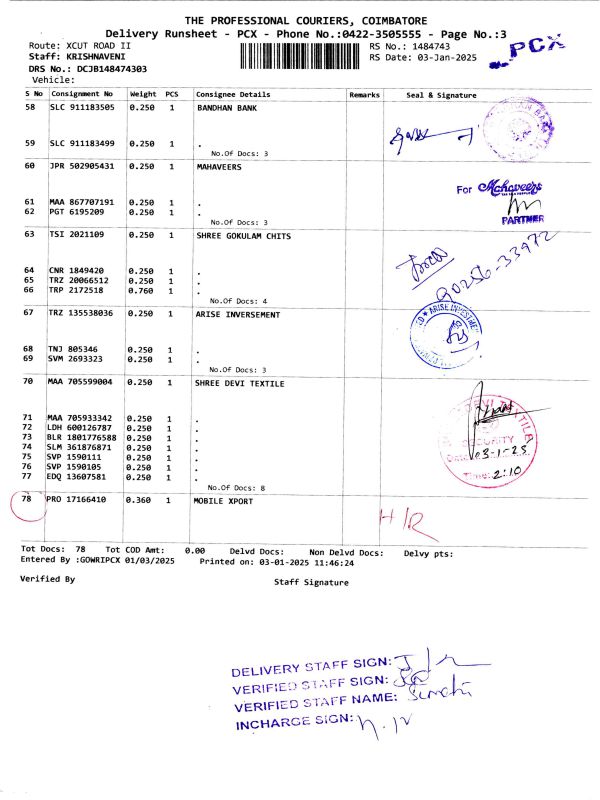 THE PROFESSIONAL COURIERS, COIMBATORE
Delivery Runsheet - PCX - Phone No.:0422-3505555 - Page No.:3
Route: XCUT ROAD II RS No.: 1484743
Staff: KRISHNAVENI RS Date: 03-Jan-2025
PCX
DRS No.: DCJB148474303
Vehicle:
S No Consignment No Weight PCS Consignee Details Remarks Seal & Signature
58 SLC 911183505 0.250 1 BANDHAN BANK
59 SLC 911183499 0.250 1 .
No.Of Docs: 3
60 JPR 502905431 0.250 1 MAHAVEERS
For Mahaveers
61 MAA 867707191 0.250 1 .
62 PGT 6195209 0.250 1 .
PARTNER
No.Of Docs: 3
63 TSI 2021109 0.250 1 SHREE GOKULAM CHITS
90256-33972
64 CNR 1849420 0.250 1 .
65 TRZ 20066512 0.250 1 .
66 TRP 2172518 0.760 1 .
No.Of Docs: 4
67 TRZ 135538036 0.250 1 ARISE INVERSEMENT
ARISE INVESTMENT
68 TNJ 805346 0.250 1 .
69 SVM 2693323 0.250 1 .
No.Of Docs: 3
70 MAA 705599004 0.250 1 SHREE DEVI TEXTILE
DEVI TEXTILE
71 MAA 705933342 0.250 1 .
72 LDH 600126787 0.250 1 .
73 BLR 1801776588 0.250 1 .
SECURITY
74 SLM 361876871 0.250 1 .
75 SVP 1590111 0.250 1 .
Date: 03-1-25
76 SVP 1590105 0.250 1 .
77 EDQ 13607581 0.250 1 .
Time: 2:10
No.Of Docs: 8
78 PRO 17166410 0.360 1 MOBILE XPORT
H/R
Tot Docs: 78 Tot COD Amt: 0.00 Delvd Docs: Non Delvd Docs: Delvy pts:
Entered By :GOWRIPCX 01/03/2025 Printed on: 03-01-2025 11:46:24
Verified By Staff Signature
DELIVERY STAFF SIGN:
VERIFIED STAFF SIGN:
VERIFIED STAFF NAME:
INCHARGE SIGN: